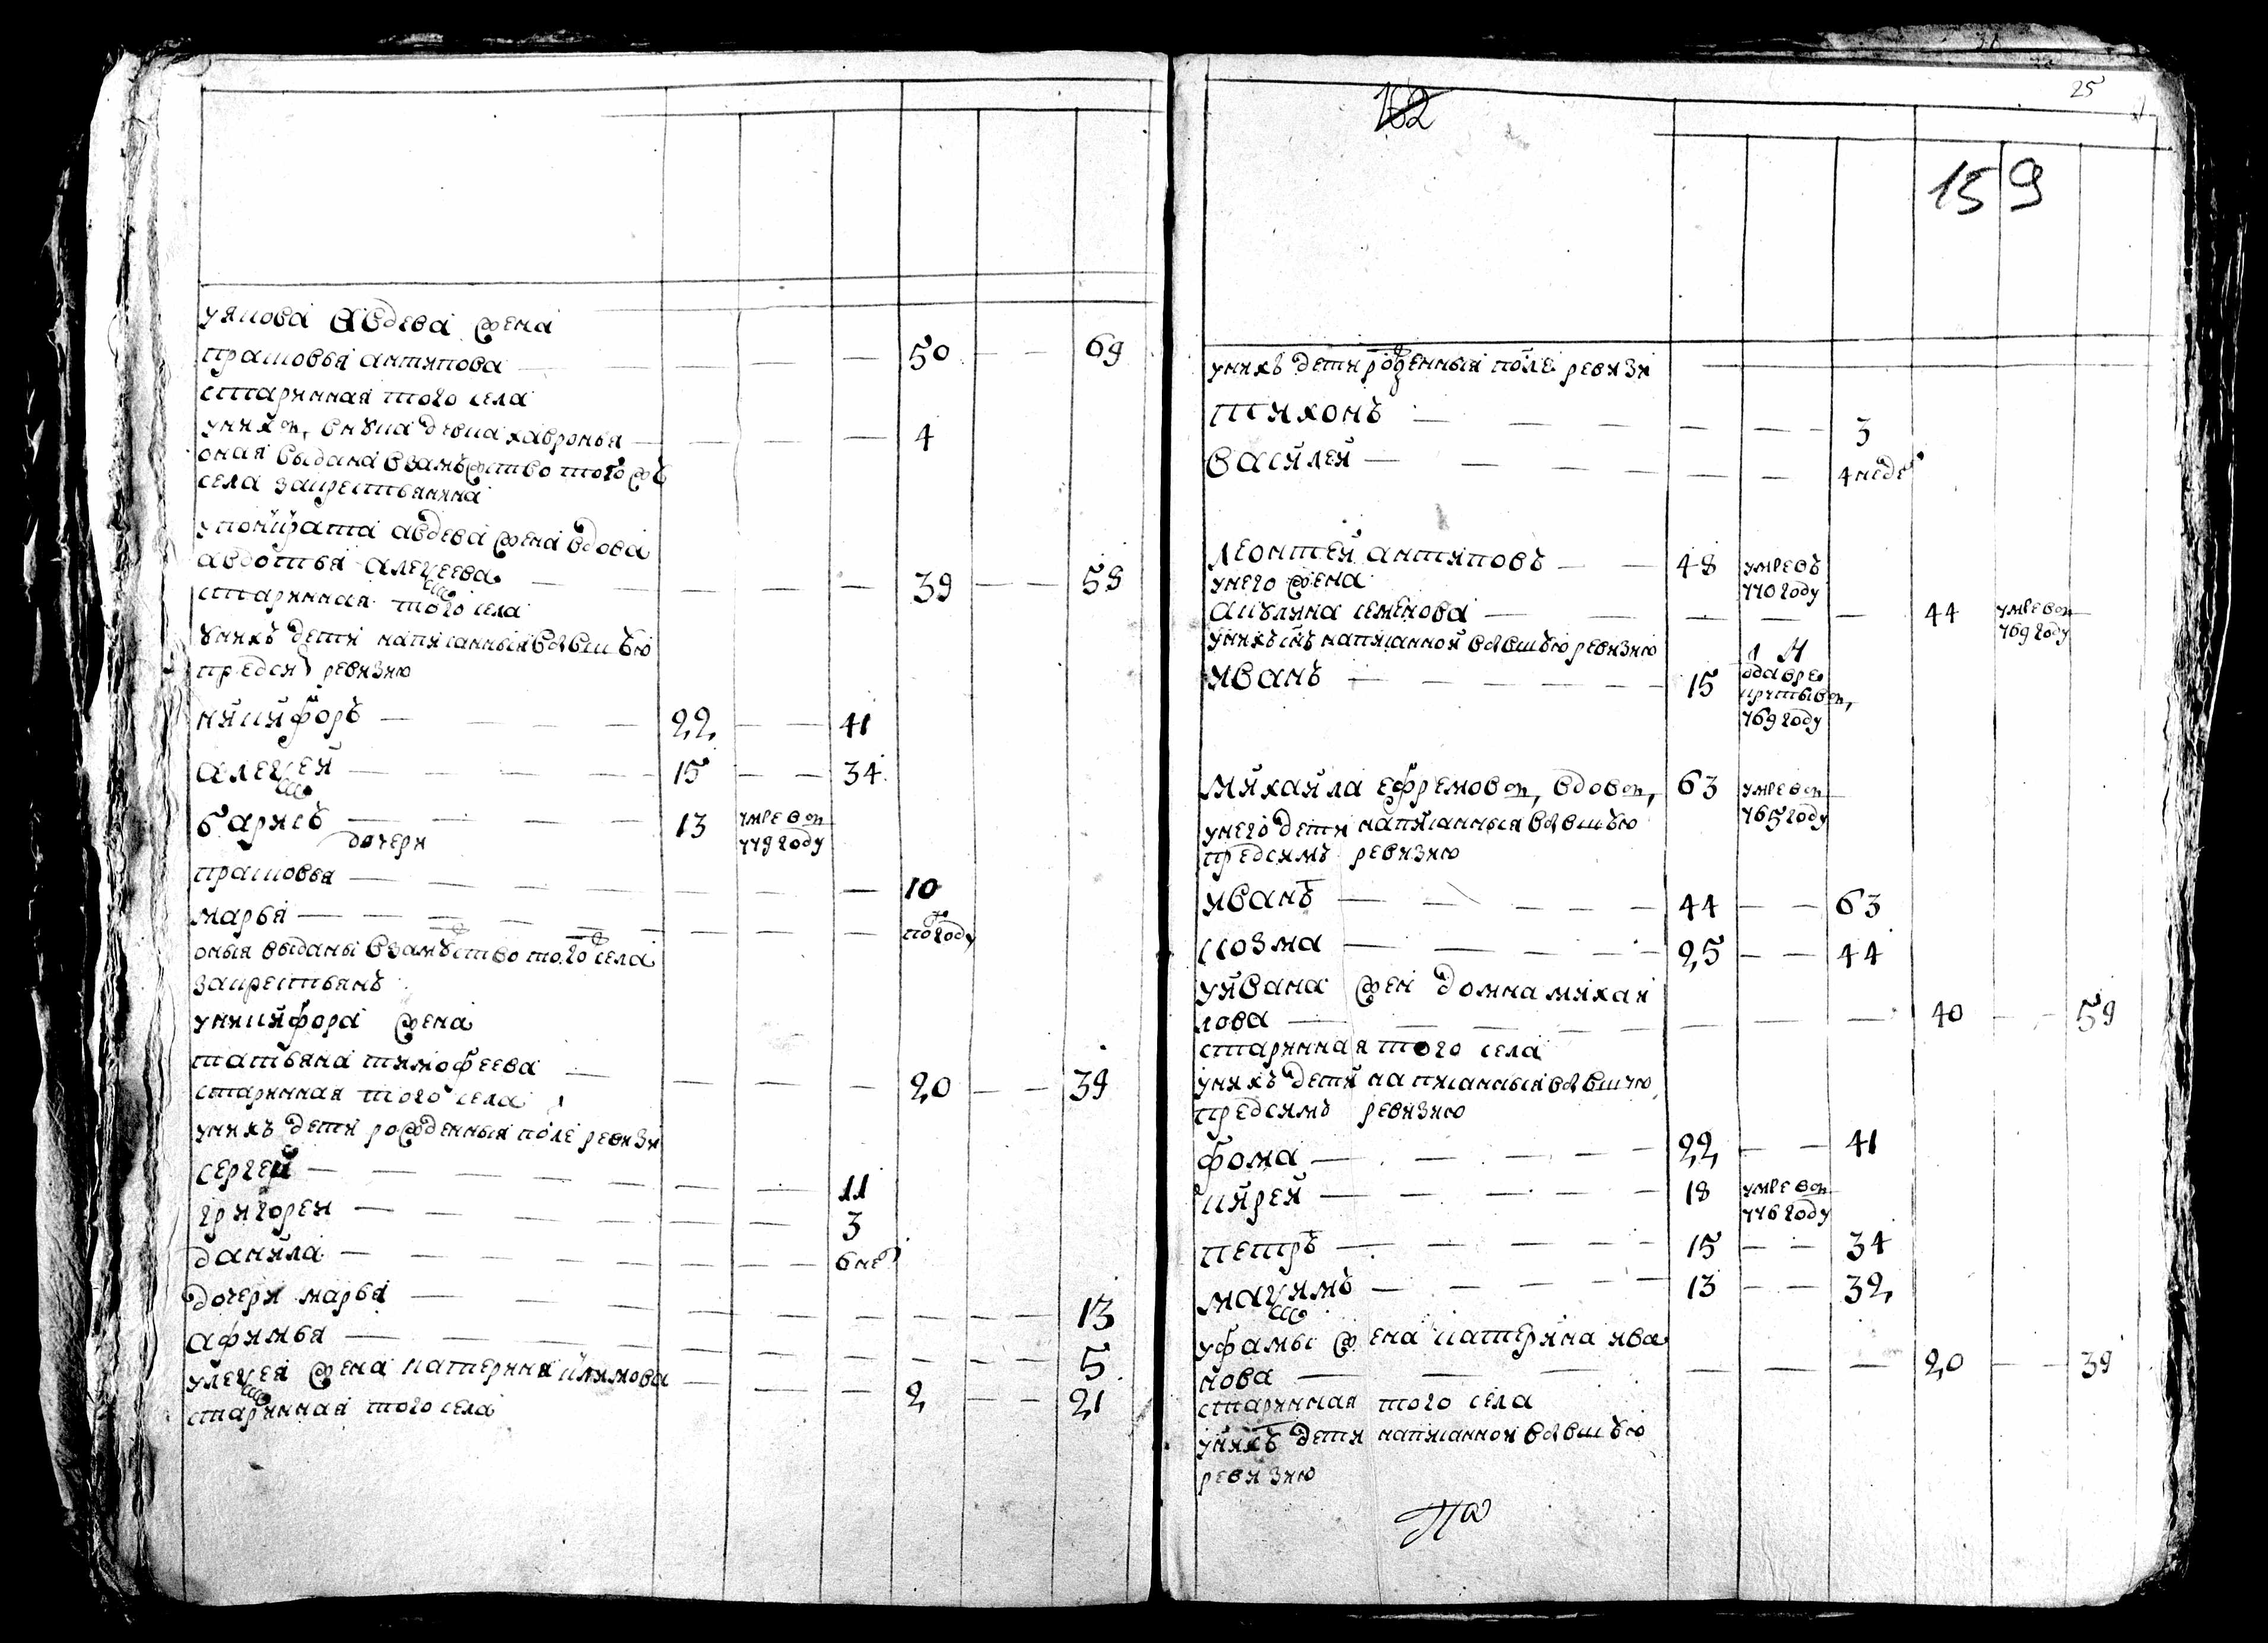 уякова авдева жена
прасковья антипова — — — 50 — — 69
старинная того села
у них внука девка хавронья — — — 4
оная выдана взамужство того ж
села за крестьянина
у понкрата авдева жена вдова
авдотья алексеева — — — 39 — — 58
старинная того села
у них дети написанныя в бывшую
пред сим ревизию
никифоръ — 22 — — 41
алексей — 15 — — 34
барисъ — 13 умре в 779 году
дочери
прасковья — — — 10
марья — — — по году
оныя выданы взамужство того ж села
за крестьянъ
у никифора жена
татьяна тимофеева — — — 20 — — 39
старинная того села
у нихъ дети рожденныя после ревизи
сергей — — — 11
григорей — — — 3
данила — — — 6 не
дочери марья — — — 13
афимья — — — 5
улексея жена катерина климова — — — 2 — — 21
старинная того села
25
162
159
у нихъ дети рожденныя после ревизи
тихонъ — — — 3
василей — — — 4 неде
леонтей антиповъ — — 48 умревъ 770 году
у него жена
акулина семенова — — — 44 умре в 769 году
у нихъ сынъ написанной в бывшую ревизию
иванъ — 15 отдан в рекруты в 769 году
михайла ефремов, вдов, 63 умре в 765 году
у него дети написанныя в бывшую
пред симъ ревизию
иванъ — 44 — — 63
козма — 25 — — 44
у ивана жена домна михай
лова — — — 40 — — 59
старинная того села
у нихъ дети написанныя в бывшую
пред симъ ревизию
фома — 22 — — 41
кирей — 18 умре в 776 году
петръ — 15 — — 34
максимъ — 13 — — 32
у фамы жена катерина ива
нова — — — 20 — — 39
старинная того села
у нихъ дети написанной в бывшую
ревизию